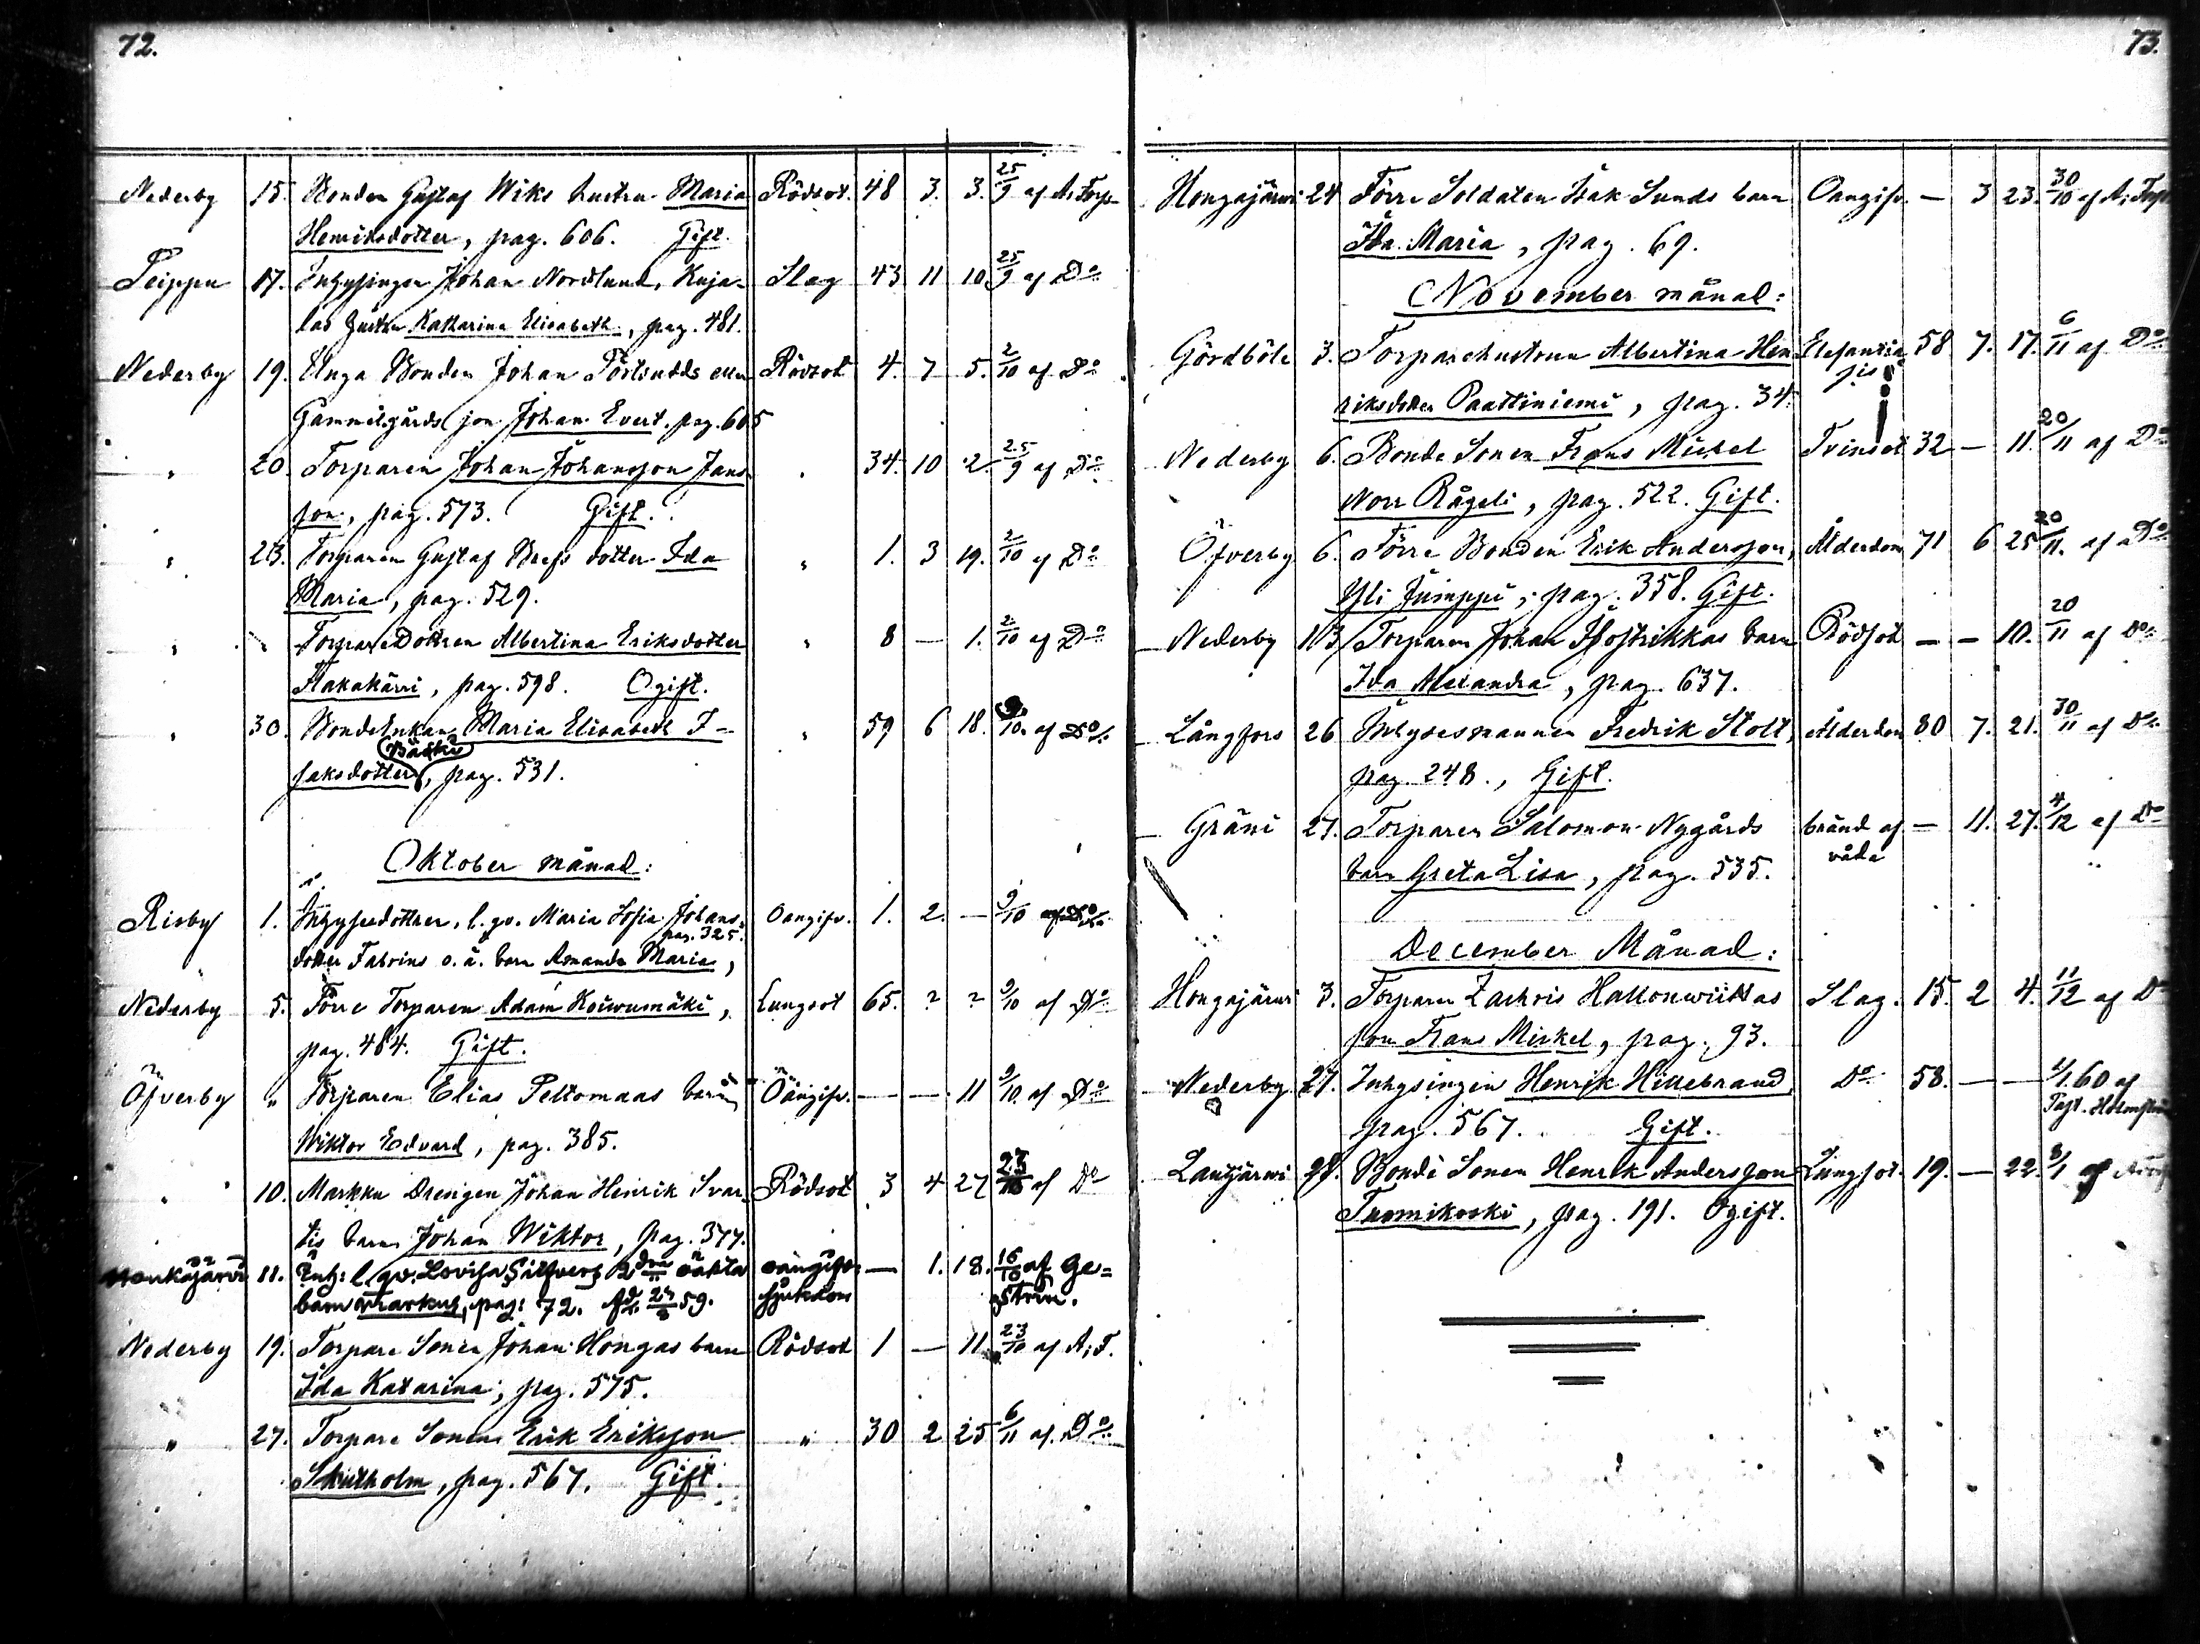 72.
Nederby 15. Bonden Gustaf Wiks hustru Maria Rödsot. 48 3. 3. 25/9 af A. Forss
Henriksdotter, pag. 606. Gift.
Peippu 17. Inhysingen Johan Nordlund, Kuja- Slag 43 11 10 25/9 af Do
las hustru Katharina Elisabeth, pag. 481.
Nederby 19. Unga Bonden Johan Förlsudds eller Rödsot 4. 7 5. 2/10 af Do
Gammelgårds son Johan Evert. pag. 605
" 20. Torparen Johan Johansson Jans- " 34. 10 2. 25/9 af Do
son, pag. 573. Gift.
" 23. Torparen Gustaf dotter Ida " 1. 3 19. 2/10 af Do
Maria, pag. 529.
" " TorpareDottren Albertina Eriksdotter " 8 — 1. 2/10 af Do
Hakakärri, pag. 598. Ogift.
" 30. BondeEnkan Maria Elisabeth I- " 59 6 18. 9/10. af Do
Bäcks
saksdotter, pag. 531.
Oktober månad:
Risby 1. Inhysesdottren, l. qv. Maria Sofia Johans- Oangifv. 1. 2. — 9/10 af Do
pag. 325.
dotter Fabrins o. ä. barn Amanda Maria,
Nederby 5. Förre Torparen Adam Koiwumäki, Lungsot 65. ? ? 9/10 af Do
pag. 484. Gift.
Öfverby " Torparen Elias Peltomaas barn Oangifv. — — 11 9/10. af Do
Wiktor Edvard, pag. 385.
" 10. Markku Drengen Johan Henrik Svar- Rödsot 3 4 27 23/10 af Do
tis barn Johan Wiktor, pag. 377.
Honkajärvi 11. Inh: l. qv. Lovisa Silfvers 2dra oäkta oangifv. — 1. 18. 16/10 af Ge=
barn Markus, pag: 72. föd. 24/8 59. sjukdom ström.
Nederby 19. Torpare Sonen Johan Hongas barn Rödsot 1 — 11 23/10 af A. F.
Ida Katarina, pag. 575.
" 27. Torpare Sonen Erik Eriksson " 30 2 25 6/11 af. Do
Skutholm, pag. 567. Gift.
73.
Hongajärvi 24 Förre Soldaten Isak Sunds barn Oangifv. — 3 23. 30/10 af A. Forss
Ida Maria, pag. 69.
November månad:
Gördböle 3. Torparehustrun Albertina Hen- Elefantia- 58 7. 17. 6/11 af Do
riksdotter Paattiniemi, pag. 34. sis
Nederby 6. Bonde Sonen Frans Mickel Tvinsot 32 — 11. 20/11 af Do
Norr Rågeli, pag. 522. Gift.
Öfverby 6. Förre Bonden Erik Andersson, Ålderdom 71 6 25 20/11. af Do
Yli Jumppi, pag. 358. Gift.
Nederby 13 Torparen Johan barn Rödsot — — 10. 20/11 af Do
Ida Alexandra, pag. 637.
Långfors 26 Inhysesmannen Fredrik Stolt, Ålderdom 80 7. 21. 30/11 af Do
pag. 248., Gift.
Gräni 27. Torparen Salomon Nygårds bränd af — 11. 27. 4/12 af Do
barn Greta Lisa, pag. 535. våda
December Månad:
Hongajärvi 3. Torparen Zachris Hallonwiitas Slag. 15. 2 4. 11/12 af Do
son Frans Mickel, pag. 93.
Nederby. 27. Inhysingen Henrik Hillebrand, Do 58. — — 1/1.60 af
Past. Holmström
pag. 567. Gift.
Lantjärvi 28. Bonde Sonen Henrik Andersson Lungsot. 19. — 22. 8/1 af
Tuomikoski, pag. 191. Ogift.